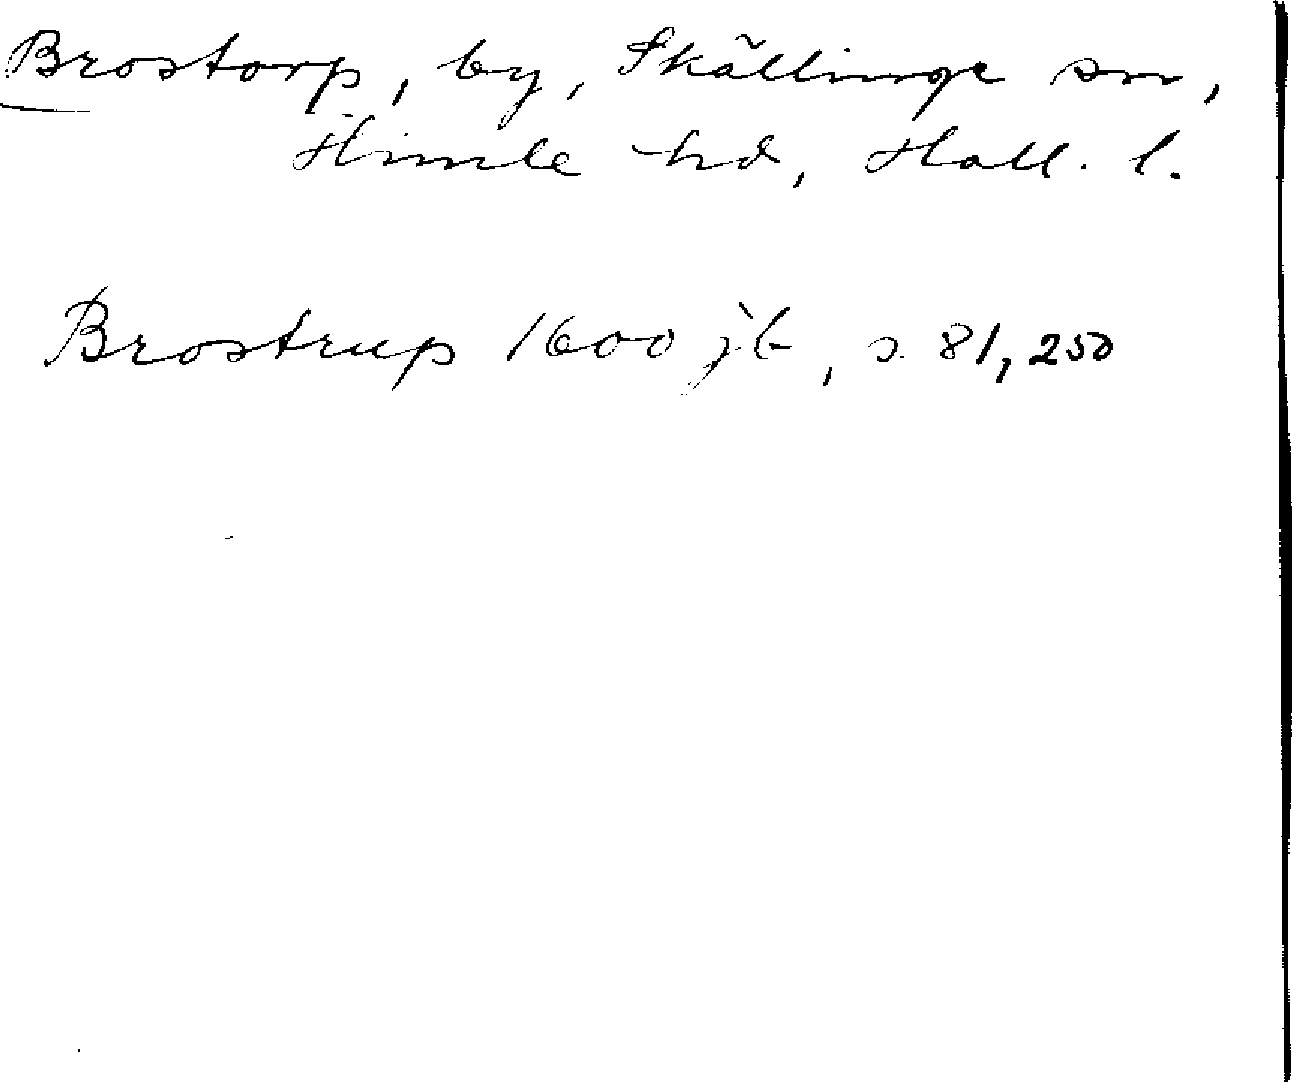 Brostorp, by, Skällinge sn,
Himle hd, Hall. l.
Brostrup 1600 jb, s. 81, 250